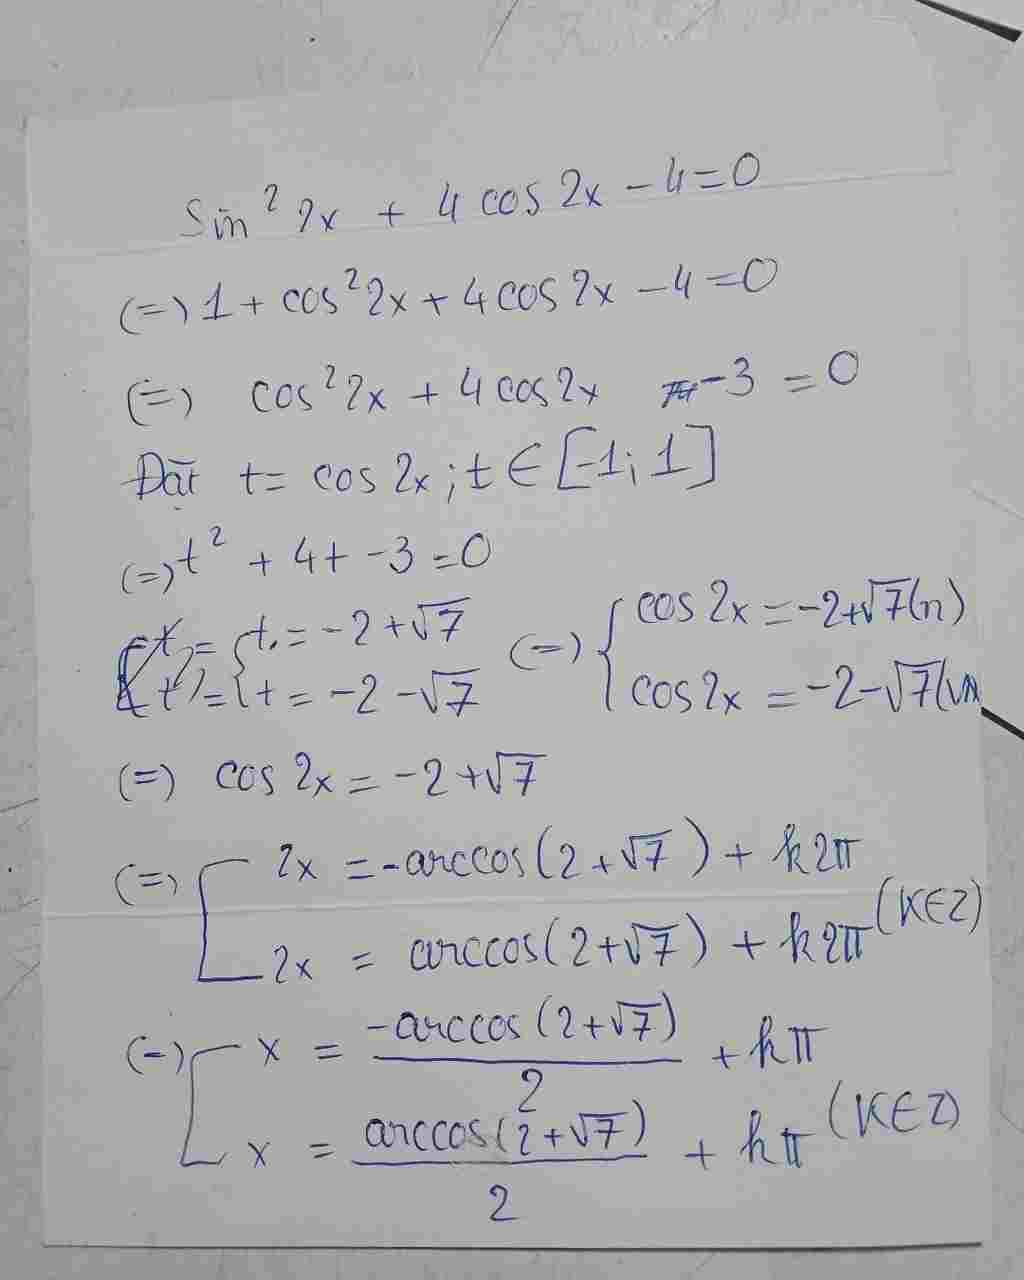 Sin² 2x + 4 cos 2x - 4 = 0
(=) 1 + cos² 2x + 4 cos 2x - 4 = 0
(=) cos² 2x + 4 cos 2x - 3 = 0
Đặt t = cos 2x ; t ∈ [-1; 1]
(=) t² + 4t - 3 = 0
{ t = -2 + √7 (=) { cos 2x = -2 + √7 (n)
t = -2 - √7 cos 2x = -2 - √7 (VN
(=) cos 2x = -2 + √7
(=) [ 2x = -arccos(2 + √7) + k2π
2x = arccos(2 + √7) + k2π (K ∈ Z)
(=) [ x = -arccos(2 + √7)/2 + kπ
x = arccos(2 + √7)/2 + kπ (K ∈ Z)